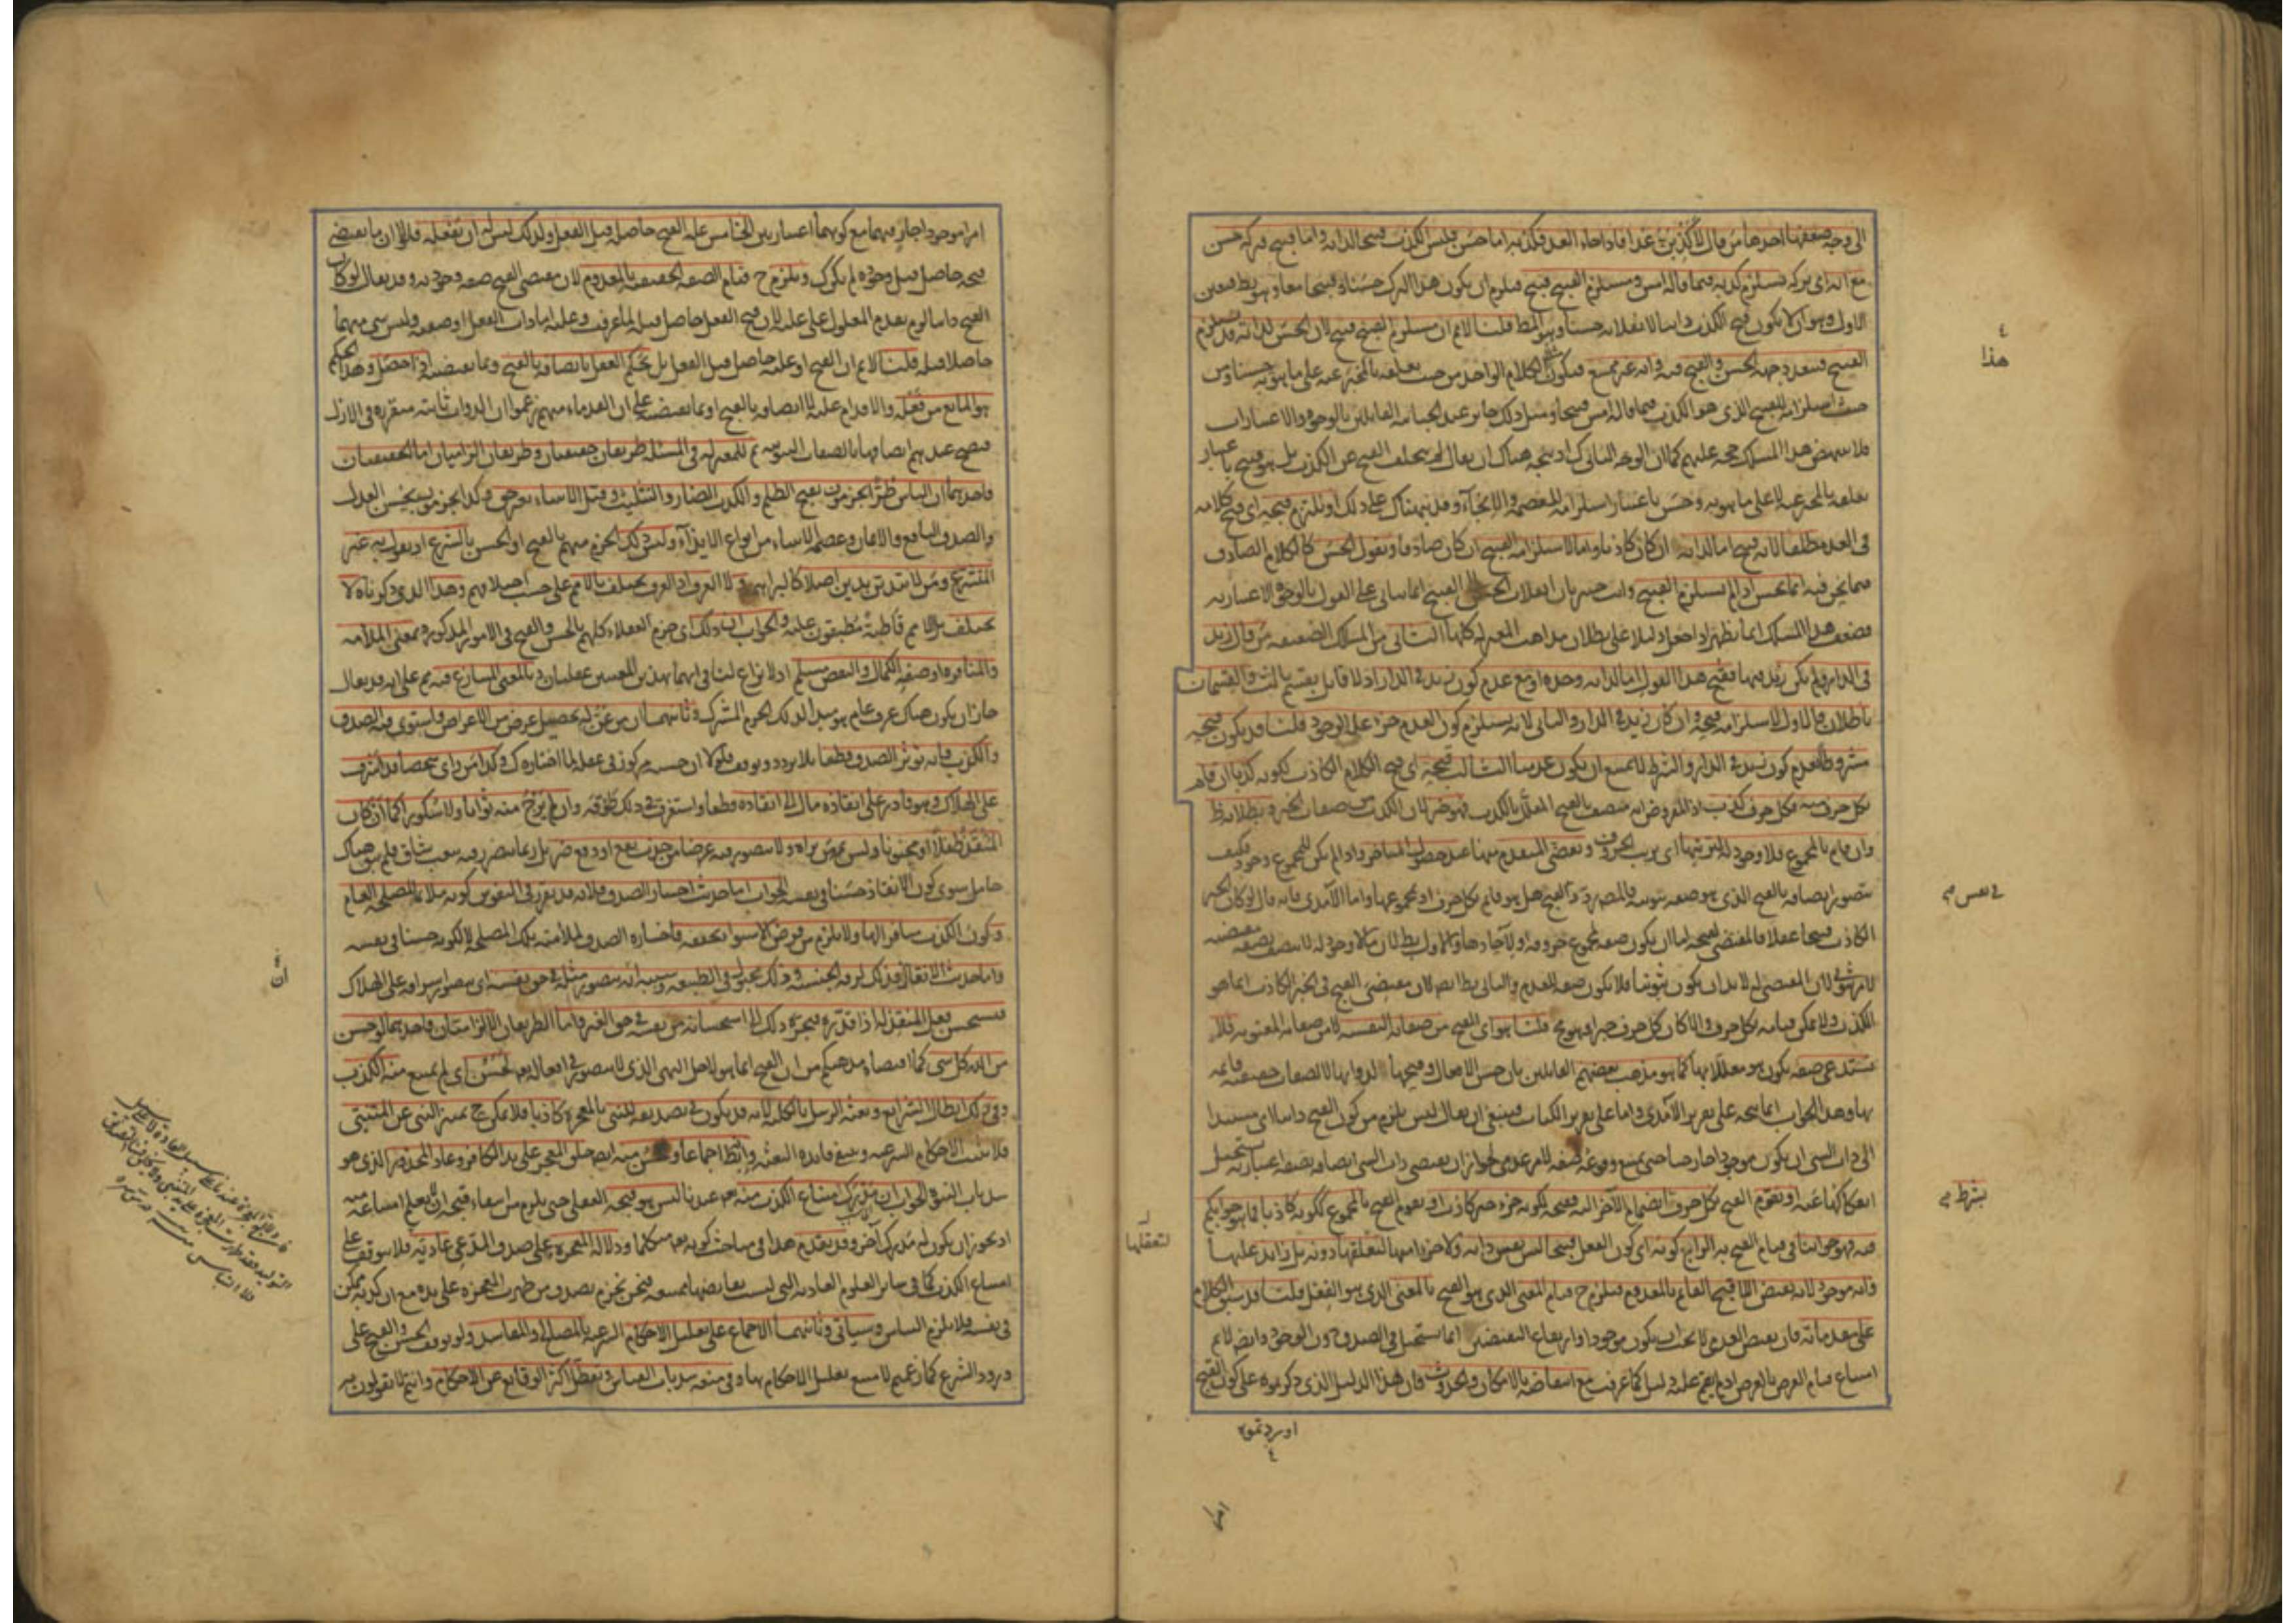 الى وجه ضعفها احدها من قال لاكذبن غدا فاذا جاء الغد فكذبه اما حسن فليس الكذب قبيحا لذاته واما قبيح فتركه حسن
مع انه اى تركه يستلزم كذبه فيما قاله امس ومستلزم القبيح قبيح فيلزم ان يكون هذا الترك حسنا وقبيحا معا وهو بط فتعين
الاول وهو ان لا يكون قبح الكذب ذاتيا لانقلابه حسنا وهو المط قلنا لانم ان مستلزم القبيح قبيح لان الحسن لذاته قد يستلزم
القبيح فتتعدد جهة الحسن والقبح فيه وانه غير ممتنع فيكون الكلام الواحد من حيث تعلقه بالمخبر عنه على ما هو به حسنا ومن
حيث استلزامه للقبيح الذى هو الكذب فيما قاله امس قبيحا ومثل ذلك جائز عند الجبائية القائلين بالوجوه والاعتبارات
فلا ينهض هذا المسلك حجة عليهم كما ان الوجه الثانى كذلك اذ يتجه هناك ان يقال لم يتخلف القبح عن الكذب بل هو قبيح باعتبار
تعلقه بالمخبر عنه لا على ما هو به وحسن باعتبار استلزامه للعصمة والانجاء وقد نبهناك على ذلك او نلتزم قبحه اى قبح كلامه
فى الغد مطلقا لانه قبيح اما لذاته ان كان كاذبا واما لاستلزامه القبيح ان كان صادقا ونقول الحسن كالكلام الصادق
فيما نحن فيه انما يحسن اذا لم يستلزم القبيح وانت خبير بان انقلاب الحسن الى القبيح انما يتأتى على القول بالوجوه الاعتبارية
فضعف هذا المسلك انما يظهر اذا جعل دليلا على بطلان مذاهب المعتزلة كلها الثانى من المسالك الضعيفة من قال زيد
فى الدار ولم يكن زيد فيها فقبح هذا القول اما لذاته وحده او مع عدم كون زيد فى الدار اذ لا قائل بقسم ثالث والقسمان
باطلان فالاول لاستلزامه قبحه وان كان زيد فى الدار والثانى لانه يستلزم كون العدم جزء علة الوجود قلنا قد يكون قبحه
مشروطا بعدم كون زيد فى الدار والشرط لا يمتنع ان يكون عدميا الثالث قبحه اى قبح الكلام الكاذب لكونه كذبا ان قام
بكل حرف منه فكل حرف كذب اذ المفروض انه متصف بالقبح المعلل بالكذب فهو خبر لان الكذب من صفات الخبر وبطلانه ظ
وان قام بالمجموع فلا وجود له لترتبها اى ترتب الحروف وتقضى المتقدم منها عند حصول المتأخر واذا لم يكن للمجموع وجود فكيف
يتصور اتصافه بالقبح الذى هو صفة ثبوتية فالمصنف ردد القبح هل هو قائم بكل حرف او بمجموعها واما الآمدى فانه قال لو كان الخبر
الكاذب قبيحا عقلا فالمقتضى لقبحه اما ان يكون صفة لمجموع حروفه او لآحادها والاول بط لان ما لا وجود له لا يتصف بصفة مقتضية
لامر ثبوتى لان المقتضى له لا بد ان يكون ثبوتيا فلا يكون صفة للعدم والثانى بط ايضا لان مقتضى القبح فى الخبر الكاذب انما هو
الكذب ولا يمكن قيامه بكل حرف والا كان كل حرف خبرا وهو مح قلنا هو اى القبح من صفاته النفسية لا من صفاته المعنوية فلا
يستدعى صفة يكون هو معللا بها كما هو مذهب بعضهم القائلين بان حسن الافعال وقبحها لذواتها لا لصفات حقيقية قائمة
بها وهذا الجواب انما يتجه على تقرير الآمدى واما على تقرير الكتاب فينبغى ان يقال ليس يلزم من كون القبح ذاتيا اى مستندا
الى ذات الشئ ان يكون موجودا خارجيا حتى يمتنع وقوعه صفة لامر عدمى لجواز ان يقتضى ذات الشئ اتصافه بصفة اعتبارية يستحيل
انفكاكها عنه او يقوم القبح بكل حرف بشرط انضمام الآخر اليه فقبحه لكونه جزء خبر كاذب او يقوم القبح بالمجموع لكونه كاذبا فما هو جوابكم
فيه فهو جوابنا فى قيام القبح به الرابع كونه اى كون الفعل قبيحا ليس نفس ذاته ولا جزءا منها لتعقلها دونه بل زائد عليها
وانه موجود لانه نقيض اللاقبح القائم بالمعدوم فيلزم ح قيام المعنى الذى هو القبح بالمعنى الذى هو الفعل قلنا قد سبق الكلام
على مقدماته فان نقيض العدمى لا يجب ان يكون موجودا وارتفاع النقيضين انما يستحيل فى الصدق دون الوجود وايضا لانم
امتناع قيام العرض بالعرض اذ لم يقم عليه دليل كما عرفت مع انتقاضه بالامكان والحدوث فان هذا الدليل الذى ذكرتموه على كون القبح
هذا
فى نفس
بشرط
لتعقلها
اوردتموه
امرا
امرا موجودا جار فيهما مع كونهما اعتباريين الخامس علة القبح حاصلة قبل الفعل ولذلك ليس له ان يفعله فلولا ان ما يقتضى
قبحه حاصل قبل وجوده لم يكن كذلك ويلزم ح قيام الصفة الحقيقية بالمعدوم لان مقتضى القبح صفة وجودية وقد يقال لو كان
القبح ذاتيا لزم تقدم المعلول على علته لان قبح الفعل حاصل قبله لما عرفت وعلته اما ذات الفعل او صفته وليس شئ منهما
حاصلا قبله قلنا لانم ان القبح او علته حاصل قبل الفعل بل يحكم العقل باتصافه بالقبح وبما يقتضيه اذا حصل وهذا الحكم
هو المانع من فعله والاقدام عليه لا اتصافه بالقبح او بما يقتضيه على ان القدماء منهم زعموا ان الذوات ثابتة متقررة فى الازل
فيصح عندهم اتصافها بالصفات الثبوتية ثم للمعتزلة فى المسئلة طريقان حقيقيان وطريقان الزاميان اما الحقيقيان
فاحدهما ان الناس طرا يجزمون بقبح الظلم والكذب الضار والتثليث وقتل الانبياء بغير حق وكذا يجزمون بحسن العدل
والصدق النافع والايمان وعصمة الانبياء من انواع الايذاء وليس ذلك الجزم منهم بالقبح او الحسن بالشرع اذ يقول به غير
المتشرع ومن لا يتدين بدين اصلا كالبراهمة ولا العرف اذ العرف يختلف بالامم على حسب اختلافهم وهذا الذى ذكرناه لا
يختلف بل الامم قاطبة مطبقون عليه والجواب ان ذلك اى جزم العقلاء كلهم بالحسن والقبح فى الامور المذكورة بمعنى الملاءمة
والمنافرة او صفة الكمال والنقص مسلم اذ لا نزاع لنا فى انهما بهذين المعنيين عقليان وبالمعنى المتنازع فيه مم على انه قد يقال
جاز ان يكون هناك عرف عام هو مبدأ لذلك الجزم المشترك وثانيهما ان من عن له تحصيل غرض من الاغراض واستوى فيه الصدق
والكذب فانه يؤثر الصدق قطعا بلا تردد وتوقف فلولا ان حسنه مركوز فى عقله لما اختاره كذلك وكذا من راى شخصا قد اشرف
على الهلاك وهو قادر على انقاذه مال الى انقاذه قطعا واستغرق فى ذلك طوقه وان لم يرج منه ثوابا ولا شكورا كما ان كان
المنقذ طفلا او مجنونا وليس ثمه من يراه ولا يتصور فيه غرضا من جذب نفع او دفع ضر بل ربما يتضرر فيه بتعب شاق فلم يبق هناك
حامل سوى كون الانقاذ حسنا فى نفسه الجواب اما حديث اختيار الصدق فلانه قد تقرر فى النفوس كونه ملائما لمصلحة العالم
وكون الكذب منافرا لها ولا يلزم من فرض الاستواء تحققه فاختياره الصدق لملاءمته تلك المصلحة لا لكونه حسنا فى نفسه
واما حديث الانقاذ فذلك لرقة الجنسية وذلك مجبول فى الطبيعة وسببه انه يتصور مثله فى حق نفسه اى يتصور اشرافه على الهلاك
فيستحسن فعل المنقذ له اذا قدره فيجره ذلك الى استحسانه من نفسه فى حق الغير واما الطريقان الالزاميتان فاحدهما لو حسن
من الله كل شئ كما اقتضاه مذهبكم من ان القبح انما هو لاجل النهى الذى لا يتصور فى افعاله تعالى لحسن اى لم يمتنع منه الكذب
وفى ذلك ابطال الشرائع وبعثة الرسل بالكلية لانه قد يكون فى تصديقه للنبى بالمعجزة كاذبا فلا يمكن ح تمييز النبى عن المتنبئ
فلا يثبت الاحكام الشرعية وينتفى فائدة البعثة وانه بط اجماعا ولحسن منه ايضا خلق المعجزة على يد الكافر وعاد المحذور الذى هو
سد باب النبوة والجواب ان مدرك امتناع الكذب منه تعالى عندنا ليس هو قبحه العقلى حتى يلزم من انتفاء قبحه ان لا يعلم امتناعه منه
اذ يجوز ان يكون له مدرك آخر وقد تقدم هذا فى مباحث كونه تعالى متكلما ودلالة المعجزة على صدق المدعى عادية فلا يتوقف على
امتناع الكذب كما فى سائر العلوم العادية التى ليست نقائضها ممتنعة فنحن نجزم بصدق من ظهرت المعجزة على يده مع ان كذبه ممكن
فى نفسه فلا يلزم التباس وسيأتى وثانيهما الاجماع على تعليل الاحكام الشرعية بالمصالح والمفاسد ولو توقف الحسن والقبح على
ورود الشرع كما زعمتم لامتنع تعليل الاحكام بها وفى منعه سد باب القياس وتعطل اكثر الوقائع عن الاحكام وانتم لا تقولون به
ان